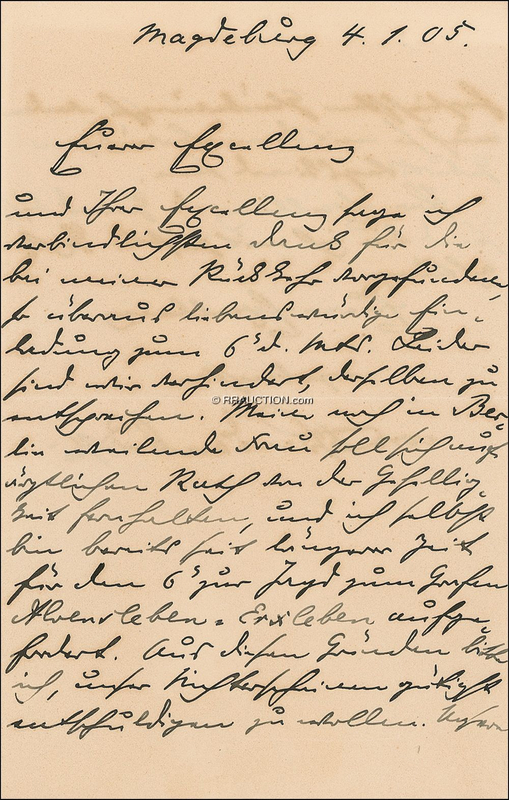 Magdeburg 4. 1. 05.
Eurer Excellenz
und Ihrer Excellenz sage ich
verbindlichsten Dank für die
bei meiner Rückkehr vorgefundene
so überaus liebenswürdige Ein-
ladung zum 6ᵗ d. Mts. Leider
sind wir verhindert, derselben zu
entsprechen. Meine noch in Ber-
© RRAUCTION.com
lin weilende Frau soll sich auf
ärztlichen Rath von der Gesellig-
keit fernhalten, und ich selbst
bin bereits seit längerer Zeit
für den 6ᵗ zur Jagd zum Grafen
Alvensleben-Erxleben aufge-
fordert. Aus diesen Gründen bitte
ich, unser Nichterscheinen gütigst
entschuldigen zu wollen.